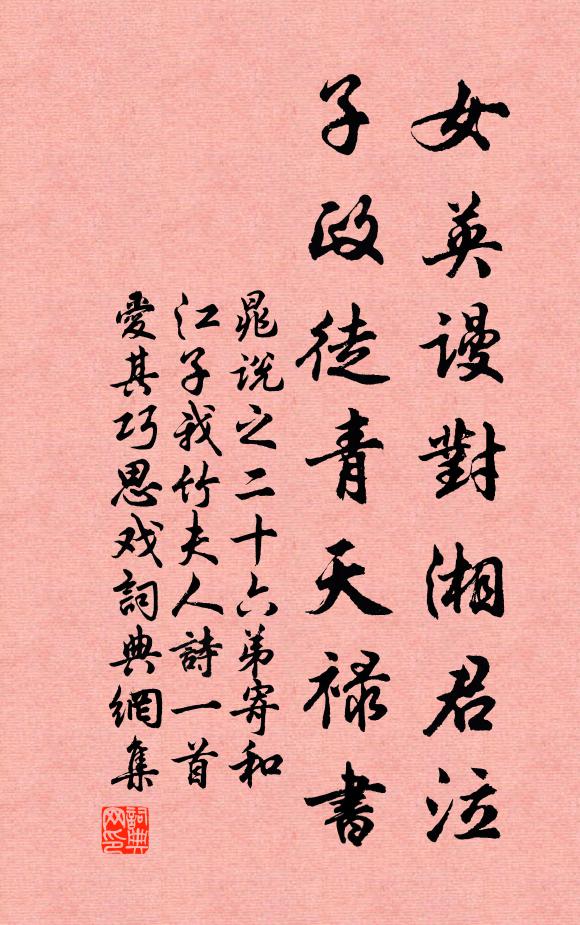 女英謾對湘君泣
子政徒青天禄書
晁說之二十六弟寄和
江子我竹夫人詩一首
愛其巧思戏詞典網集
詞典网印